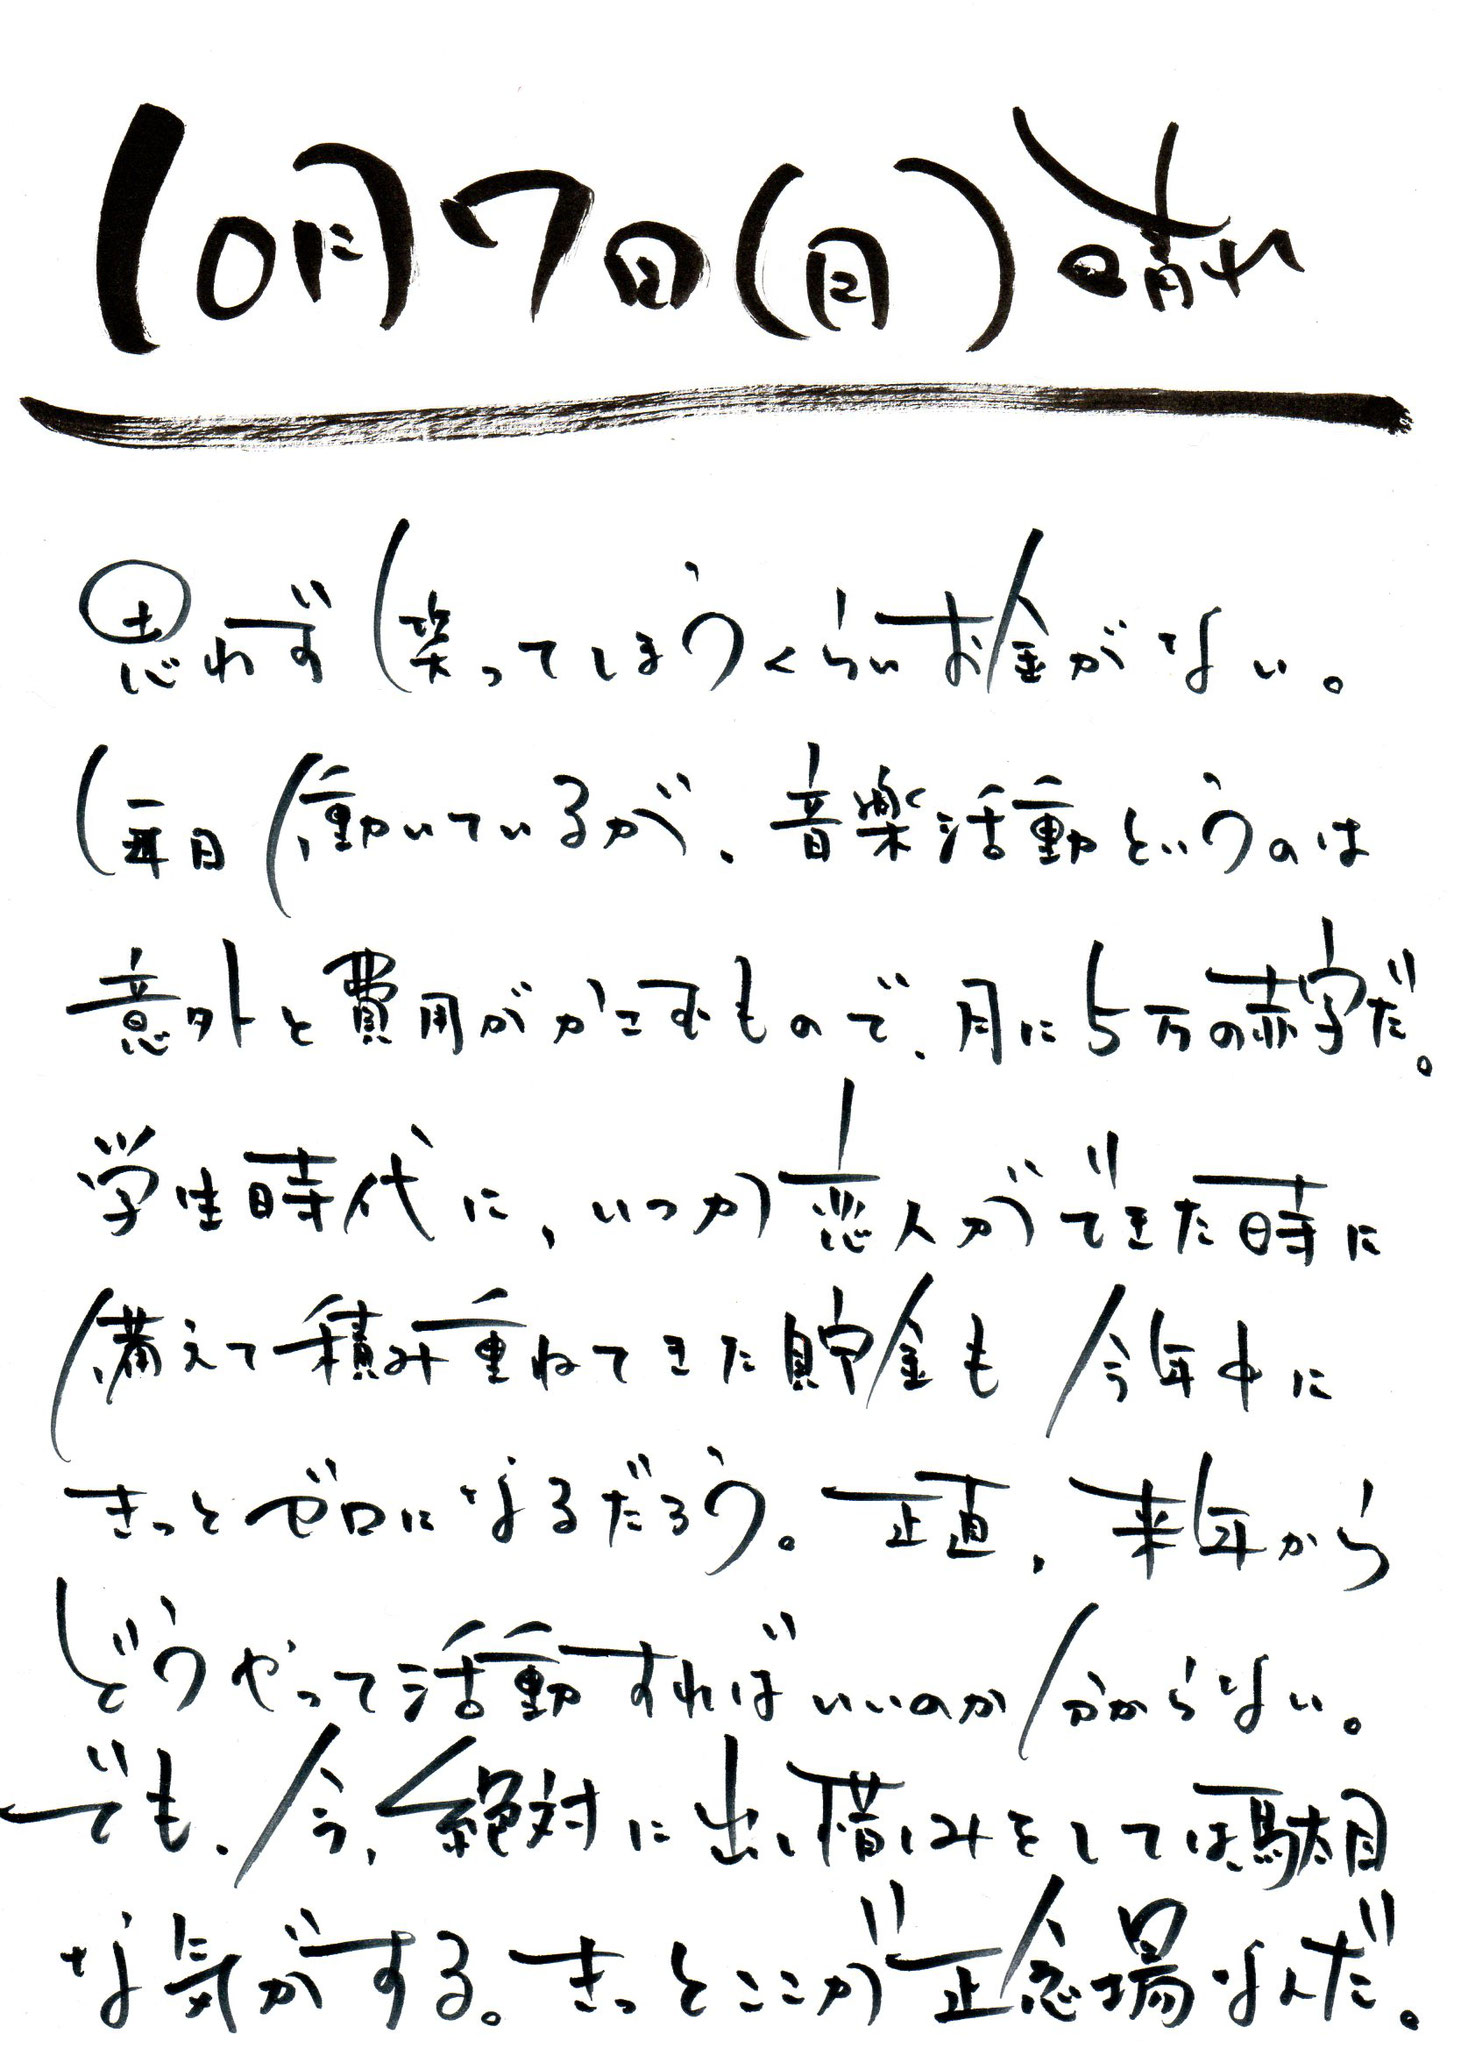 10月7日(月)晴れ
思わず笑ってしまうくらいお金がない。
毎日働いているが、音楽活動というのは
意外と費用がかさむもので、月に5万の赤字だ。
学生時代に、いつか恋人ができた時に
備えて積み重ねてきた貯金も今年中に
きっとゼロになるだろう。正直、来年から
どうやって活動すればいいのか分からない。
でも、今、絶対に出し惜しみをしては駄目
な気がする。きっとここが正念場なんだ。